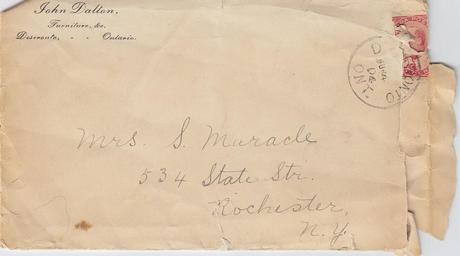 John Dalton,
Furniture, &c.
Deseronto, - - Ontario.
Mrs. S. Maracle
534 State Str.
Rochester,
N.Y.